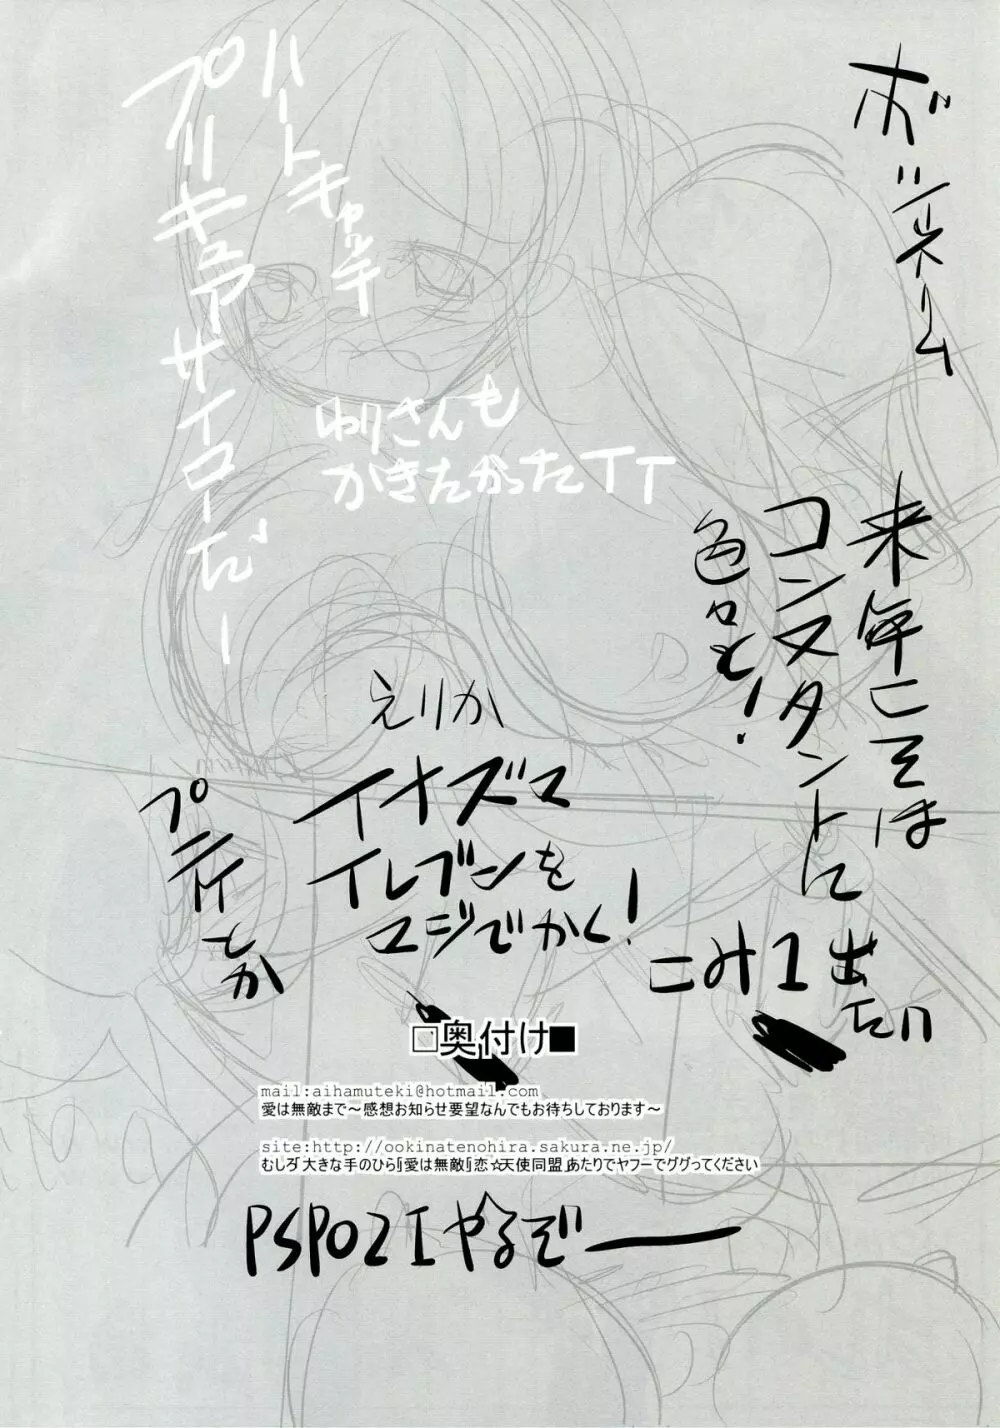 ボツネーム
ハートキャッチ
プリキュア サイコーだー
ゆりさんも
かきたかったTT
来年こそは
コンスタントに
色々と!
こみ1出
たい
えりか
イナズマ
イレブンを
マジでかく!
プニイケ
とか
□奥付け■
mail:aihamuteki@hotmail.com
愛は無敵まで~感想お知らせ要望なんでもお待ちしております~
site:http://ookinatenohira.sakura.ne.jp/
むしろ「大きな手のひら」「愛は無敵」「恋☆天使同盟」あたりでヤフーでググってください
PSPO2Iやるぞー